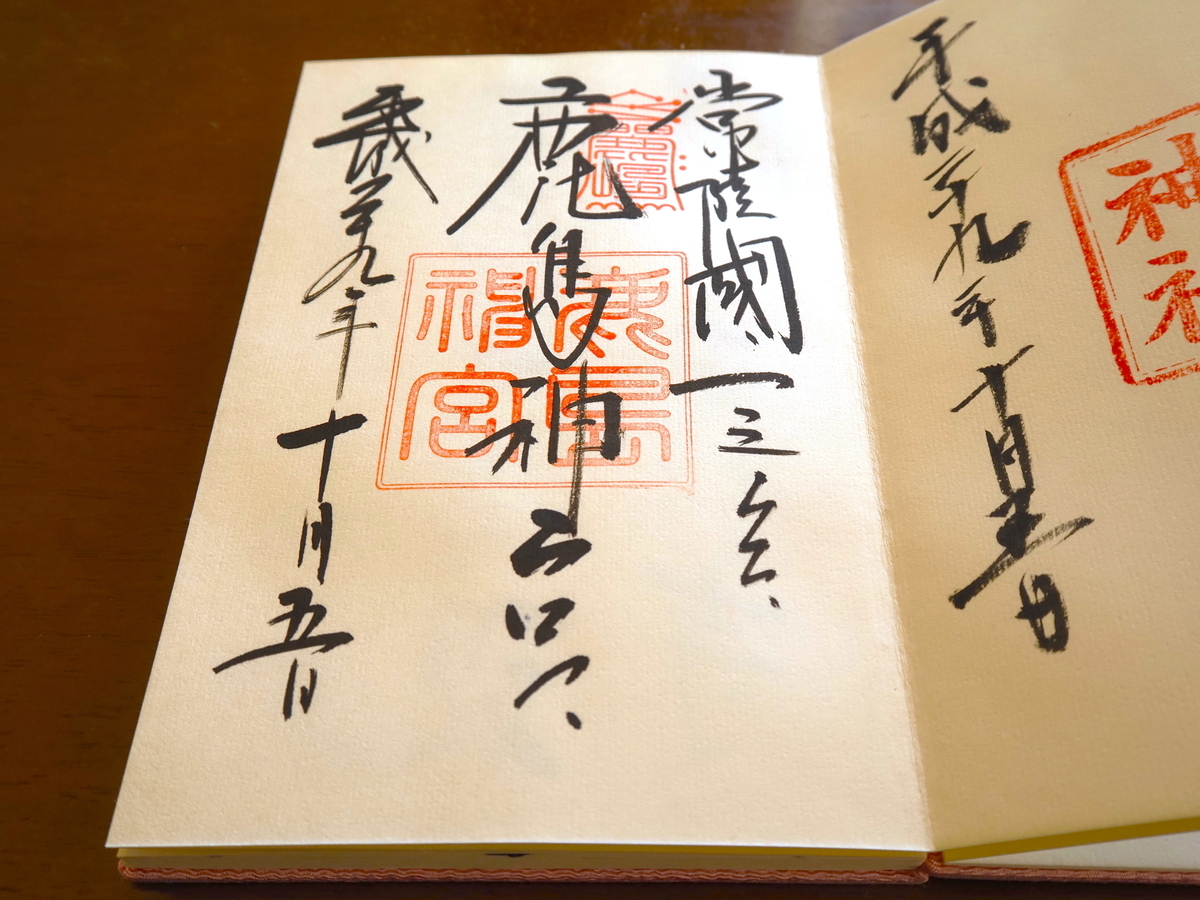 神社
平成二九年十月五日
常陸國一之宮
鹿島神宮
鹿島
神宮
平成二十九年十月五日